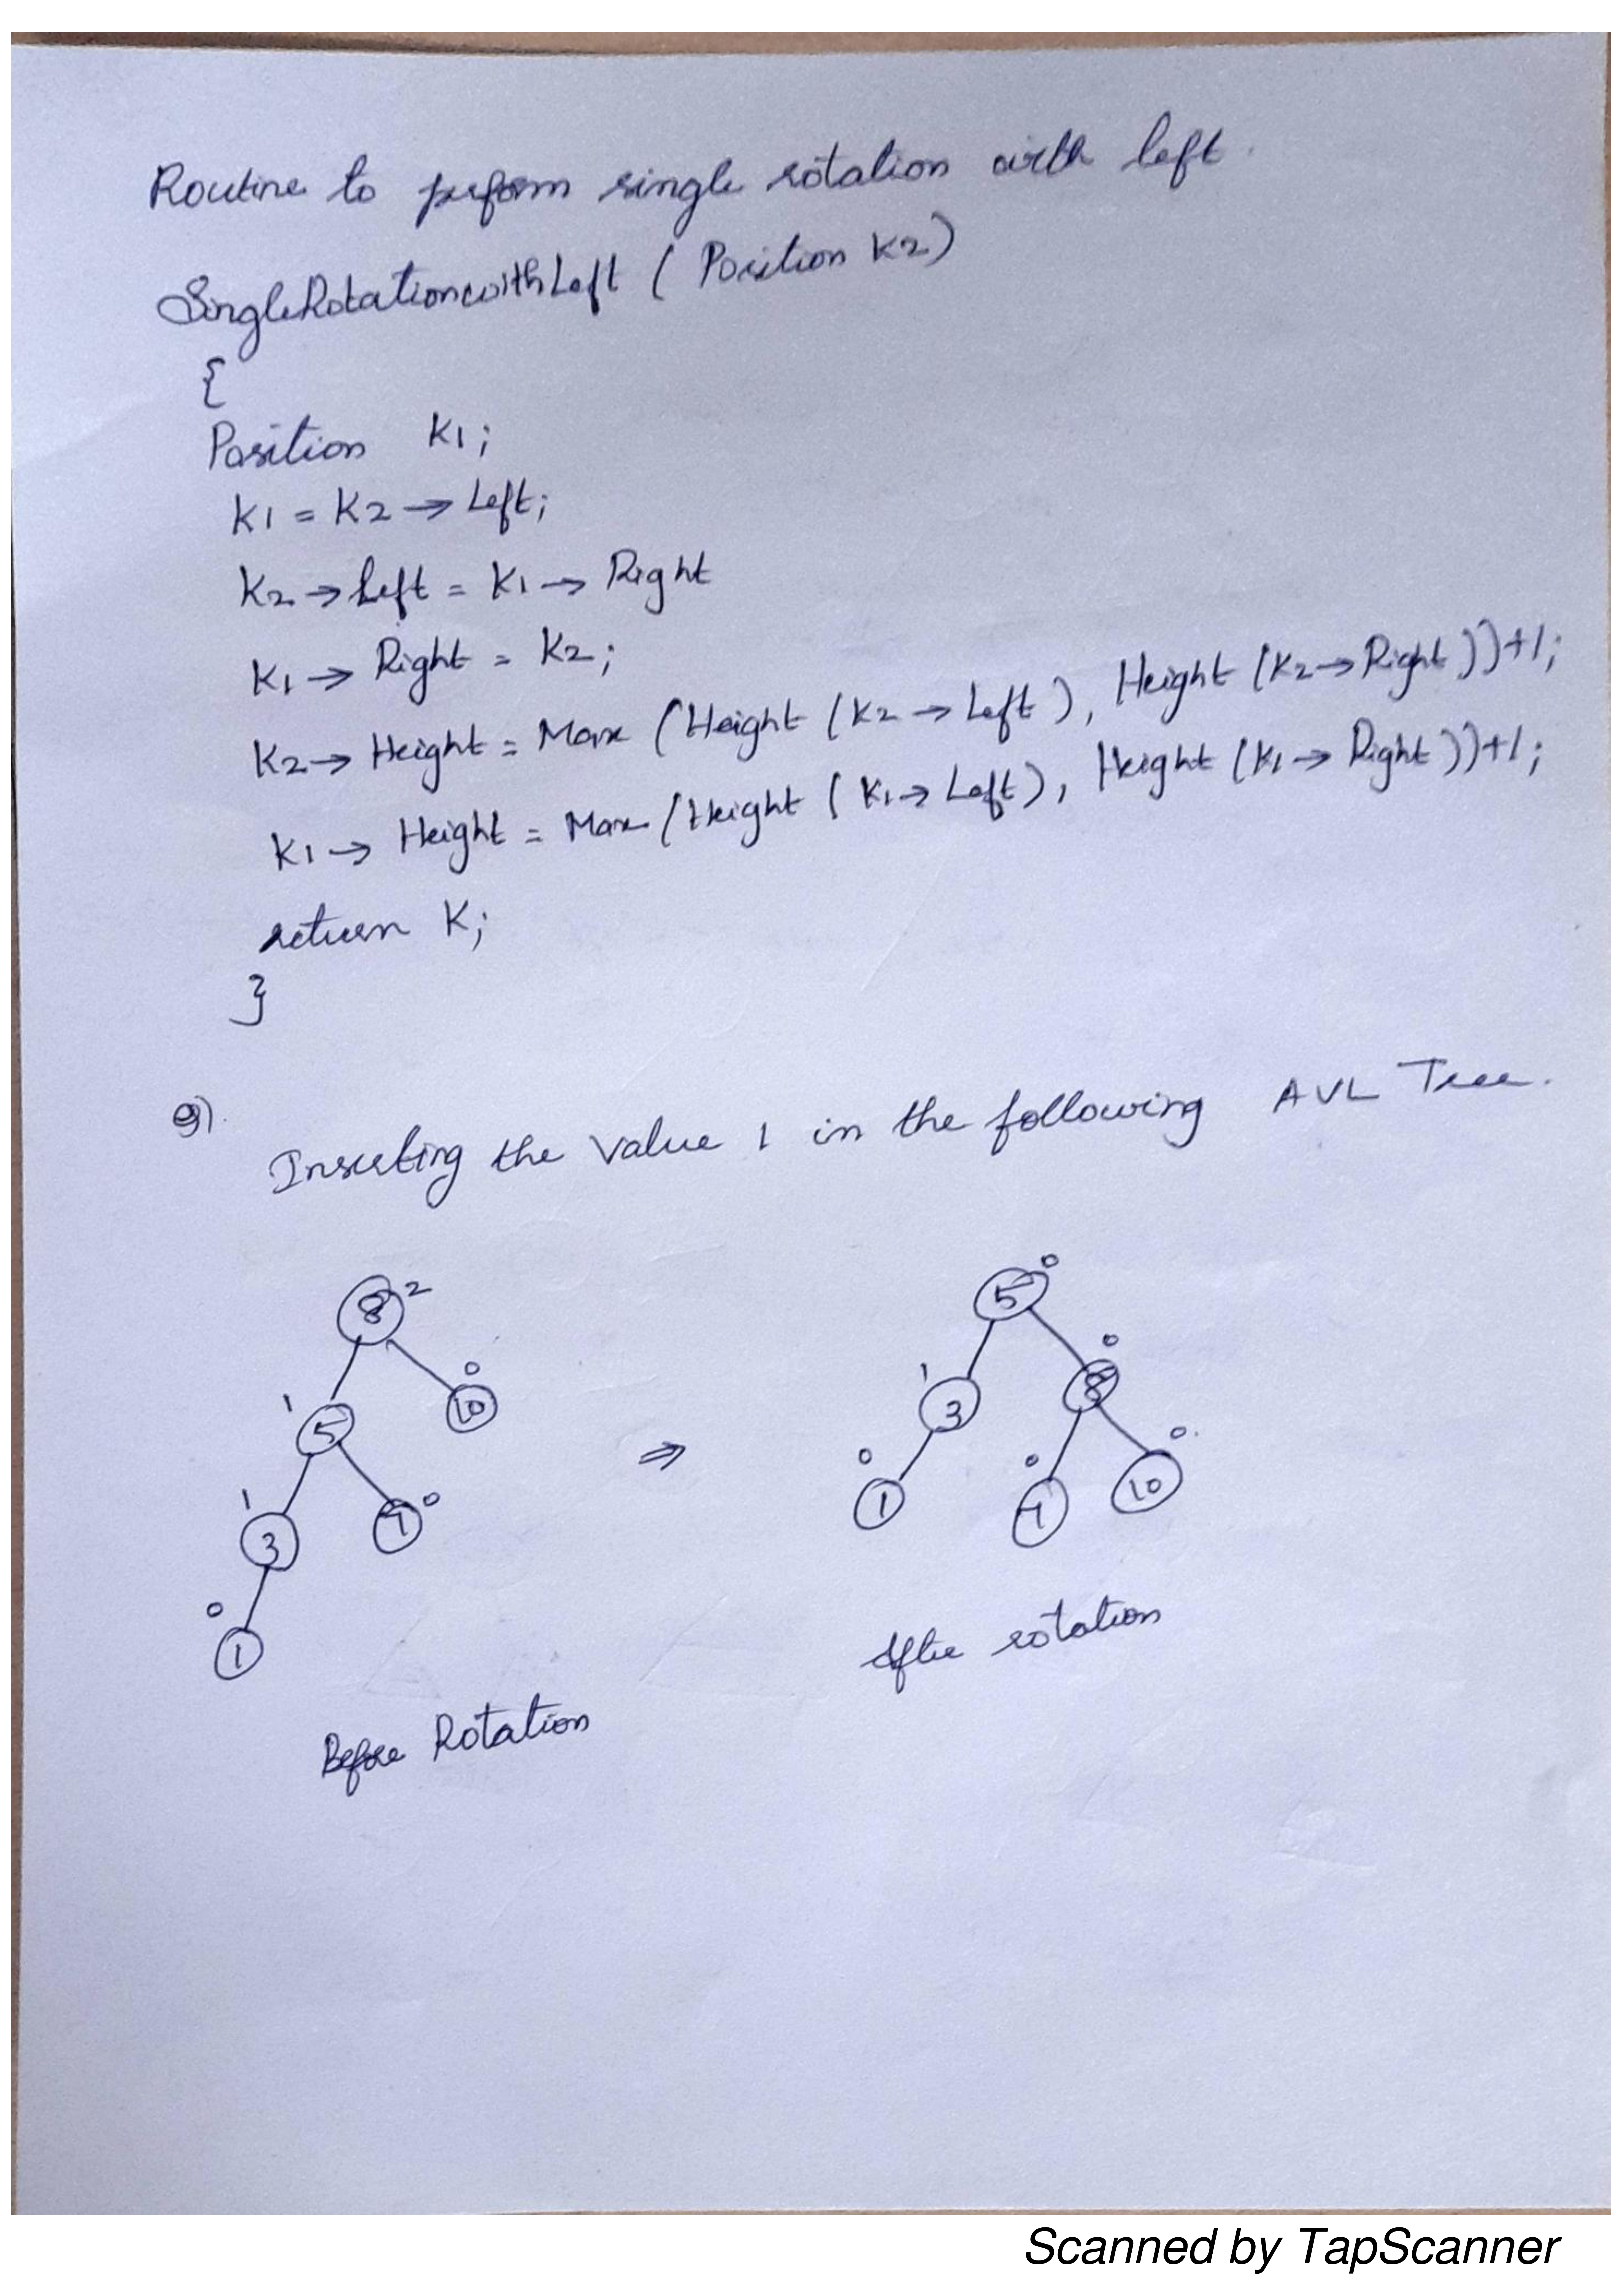 Routine to perform single rotation with left.
SingleRotationwithLeft ( Position K2)
{
Position K1;
K1 = K2 → Left;
K2 → Left = K1 → Right
K1 → Right = K2;
K2 → Height = Max (Height (K2 → Left), Height (K2 → Right))+1;
K1 → Height = Max (Height (K1 → Left), Height (K1 → Right))+1;
return K;
}
Inserting the value 1 in the following AVL Tree.
8 2
10 0
1 5
1 3
7 0
0 1
Before Rotation
⇒
5 0
1 3
8 0
0 1
0 7
10 0
After rotation
Scanned by TapScanner